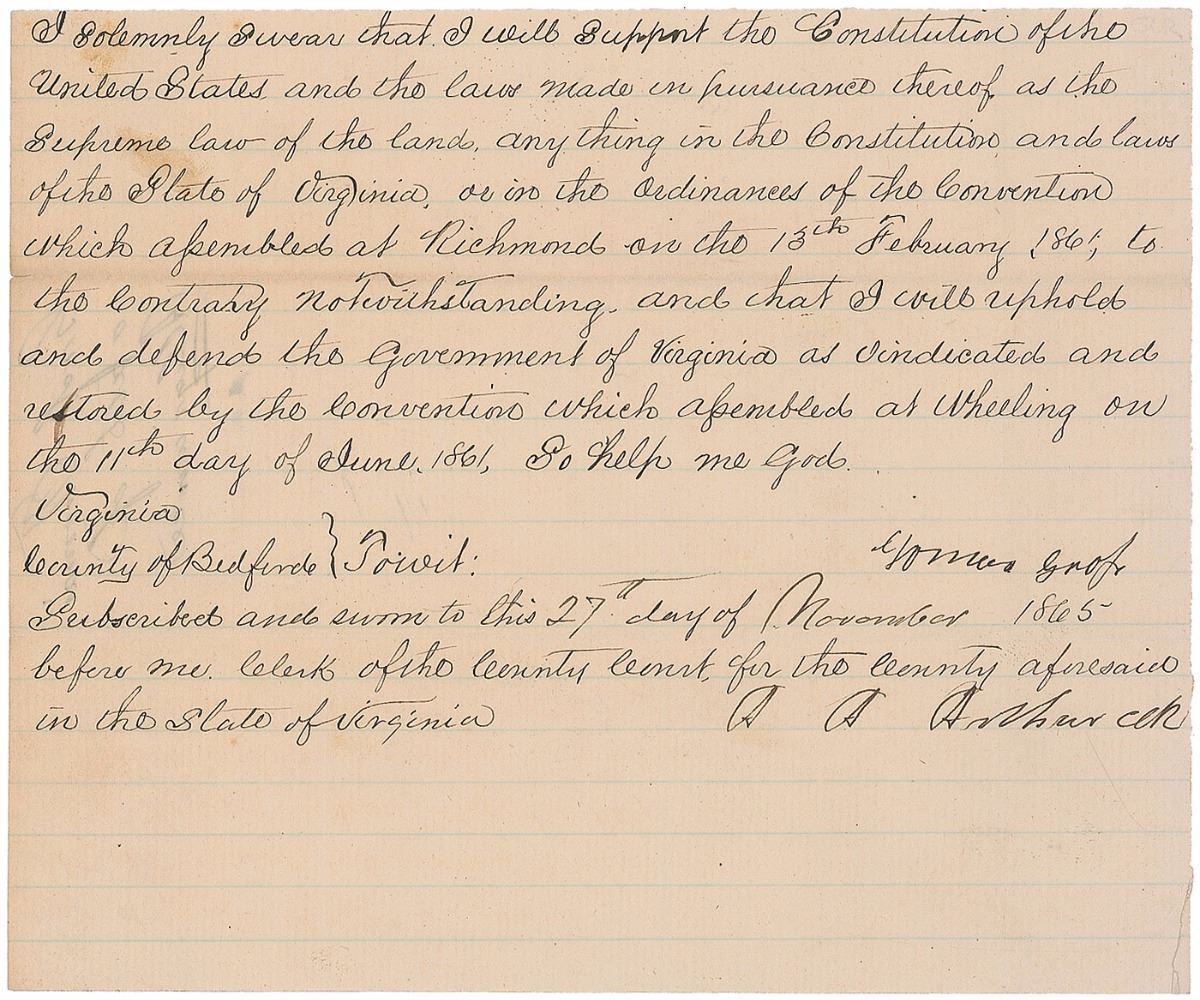 I Solemnly Swear that I will Support the Constitution of the
United States, and the laws made in pursuance thereof, as the
Supreme law of the land, any thing in the Constitution and laws
of the State of Virginia, or in the Ordinances of the Convention
which assembled at Richmond on the 13th February 1861, to
the Contrary Notwithstanding, and that I will uphold
and defend the Government of Virginia as vindicated and
restored by the Convention which assembled at Wheeling on
the 11th day of June, 1861, So help me God.
Virginia
County of Bedford } Towit:
Subscribed and sworn to this 27th day of November 1865
before me. Clerk of the County Court, for the County aforesaid
in the State of Virginia Arthur Clk